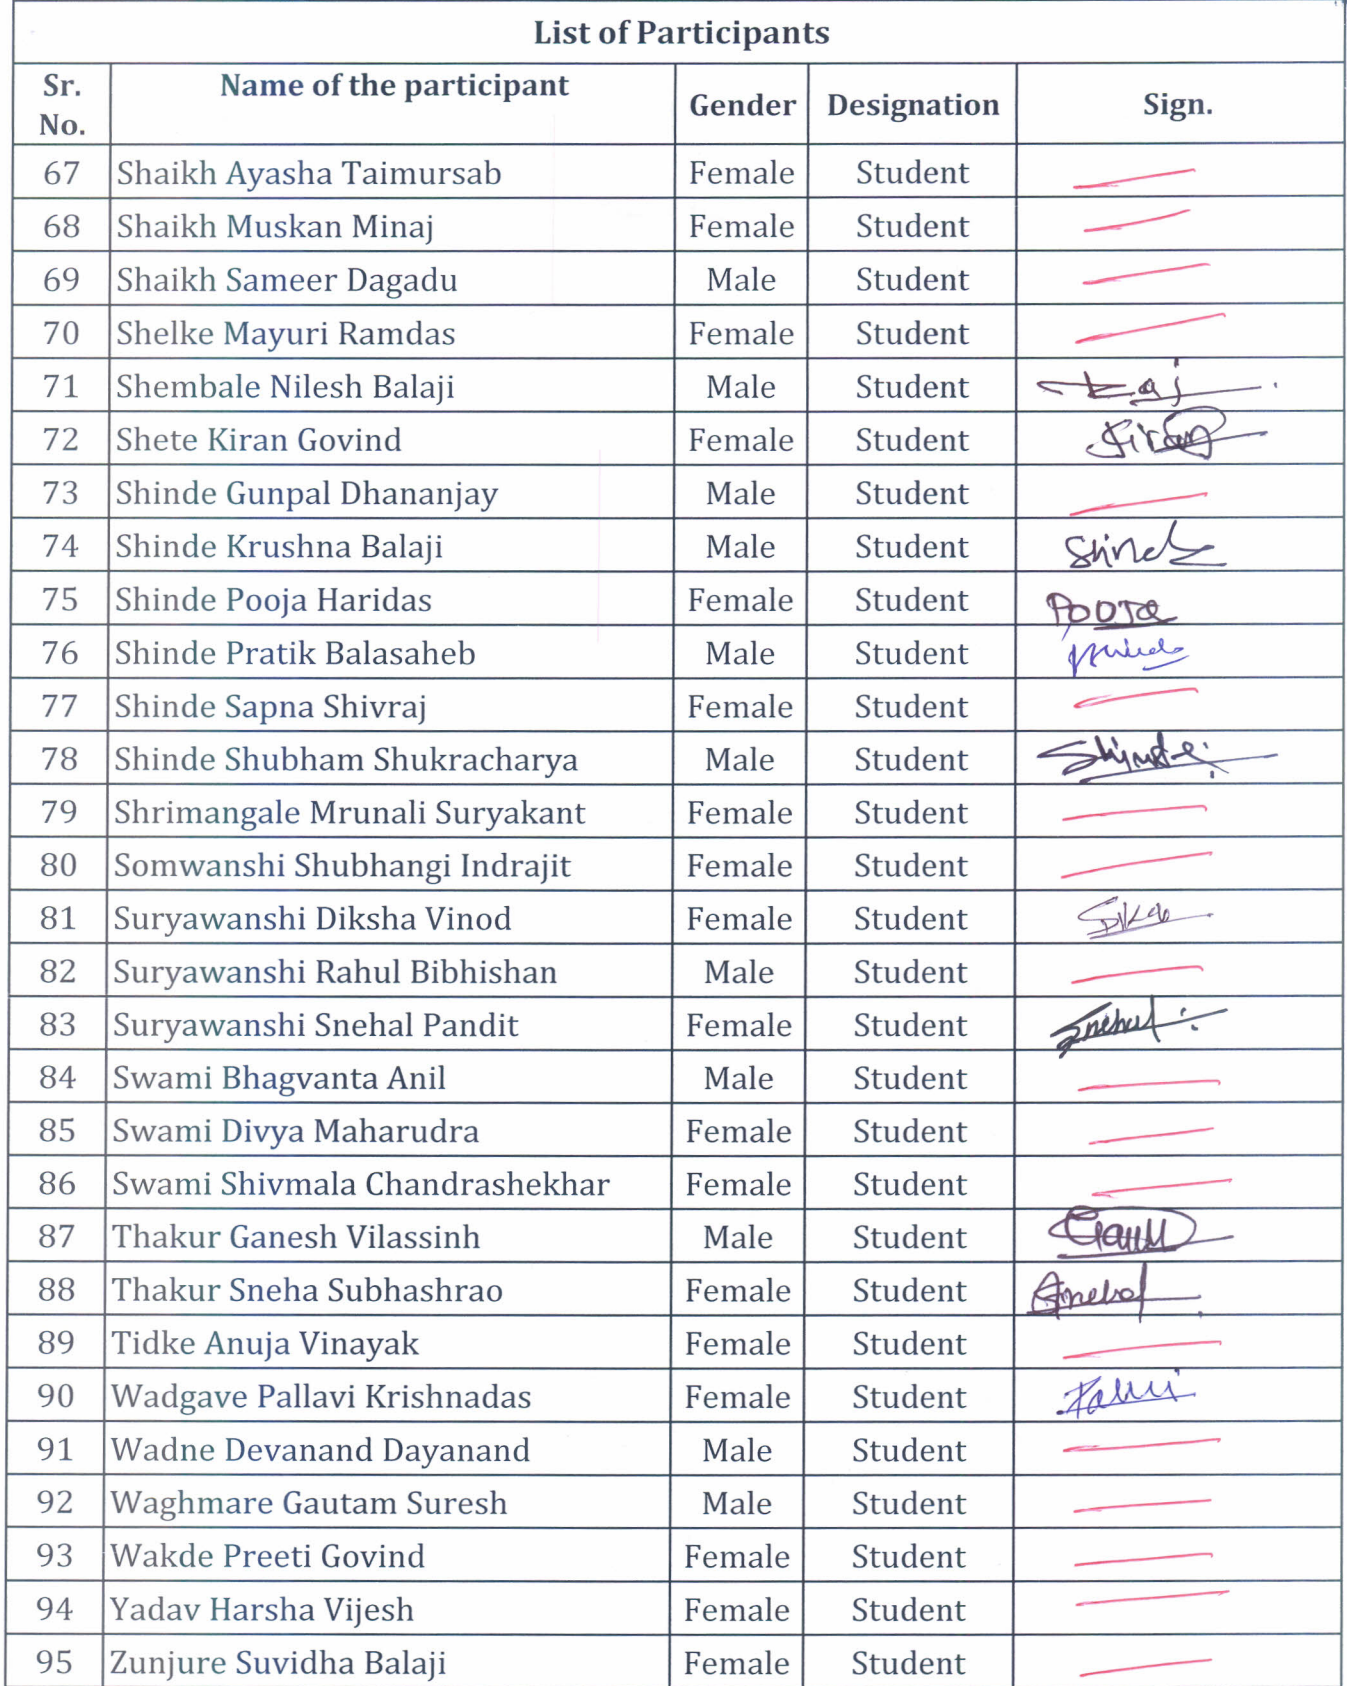 List of Participants
Sr. No. Name of the participant Gender Designation Sign.
67 Shaikh Ayasha Taimursab Female Student
68 Shaikh Muskan Minaj Female Student
69 Shaikh Sameer Dagadu Male Student
70 Shelke Mayuri Ramdas Female Student
71 Shembale Nilesh Balaji Male Student
72 Shete Kiran Govind Female Student Kiran
73 Shinde Gunpal Dhananjay Male Student
74 Shinde Krushna Balaji Male Student Shinde
75 Shinde Pooja Haridas Female Student Pooja
76 Shinde Pratik Balasaheb Male Student
77 Shinde Sapna Shivraj Female Student
78 Shinde Shubham Shukracharya Male Student Shinde
79 Shrimangale Mrunali Suryakant Female Student
80 Somwanshi Shubhangi Indrajit Female Student
81 Suryawanshi Diksha Vinod Female Student
82 Suryawanshi Rahul Bibhishan Male Student
83 Suryawanshi Snehal Pandit Female Student Snehal
84 Swami Bhagvanta Anil Male Student
85 Swami Divya Maharudra Female Student
86 Swami Shivmala Chandrashekhar Female Student
87 Thakur Ganesh Vilassinh Male Student
88 Thakur Sneha Subhashrao Female Student
89 Tidke Anuja Vinayak Female Student
90 Wadgave Pallavi Krishnadas Female Student
91 Wadne Devanand Dayanand Male Student
92 Waghmare Gautam Suresh Male Student
93 Wakde Preeti Govind Female Student
94 Yadav Harsha Vijesh Female Student
95 Zunjure Suvidha Balaji Female Student